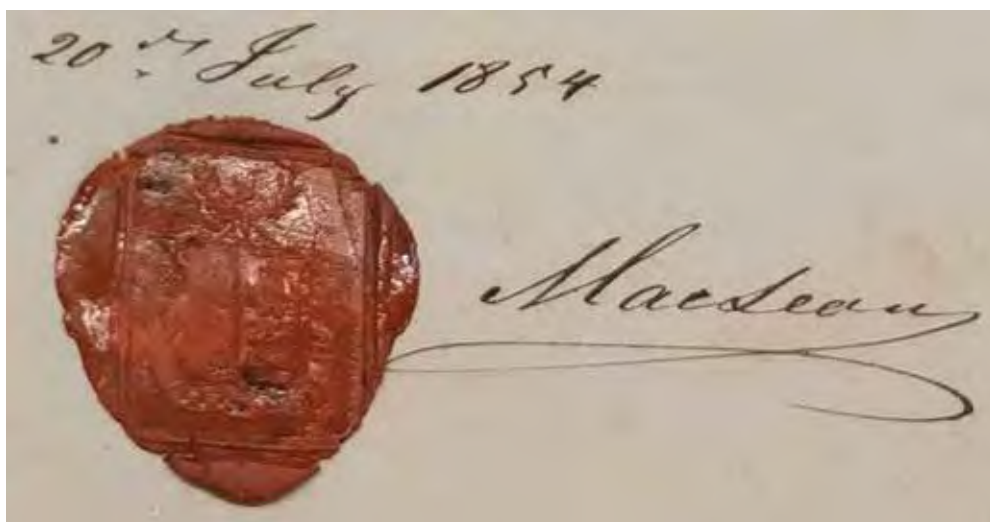 20th July 1854
MacLean